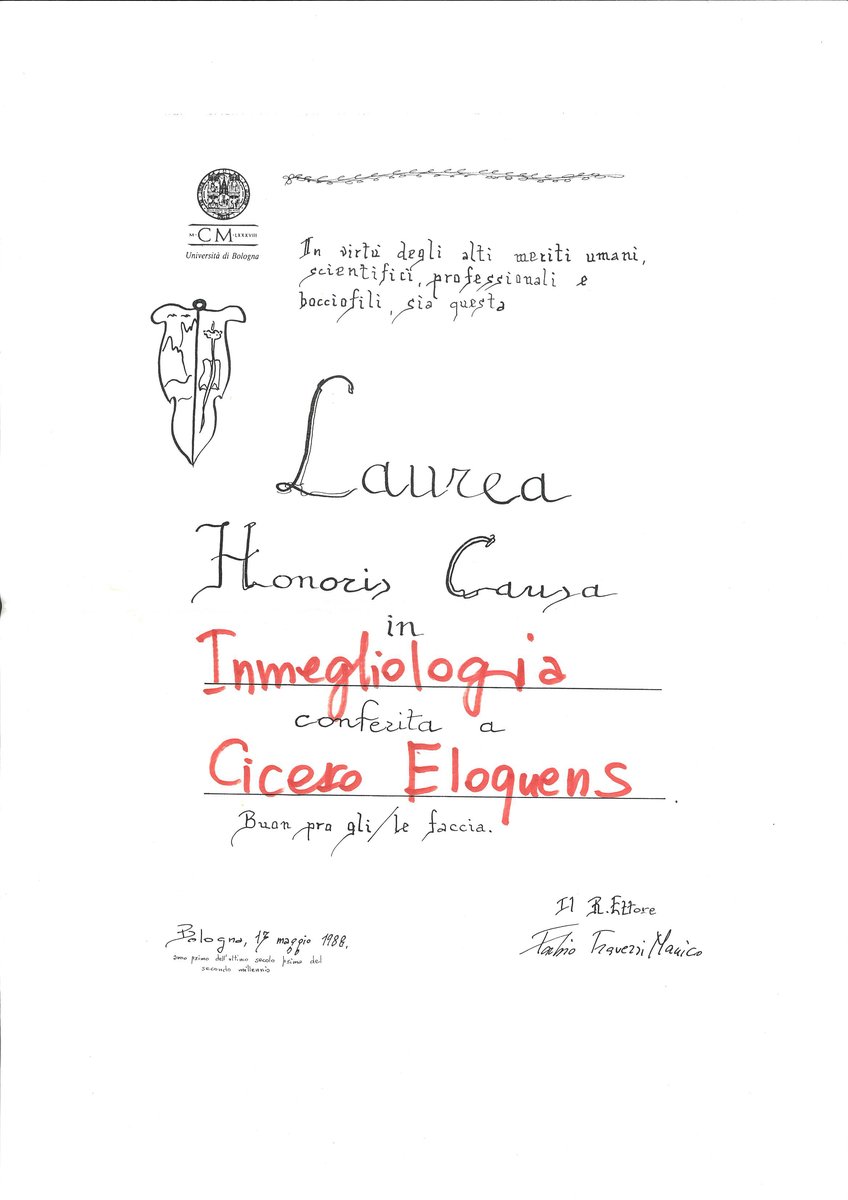 M·CM·LXXXVIII
Università di Bologna
In virtù degli alti meriti umani,
scientifici, professionali e
bocciofili, sia questa
Laurea
Honoris Causa
in
Inmegliologia
conferita a
Cicero Eloquens
.
Buon pro gli/le faccia.
Il R.Ettore
Fabio Traversi Manico
Bologna, 17 maggio 1988.
anno primo dell'ottimo secolo primo del
secondo millennio